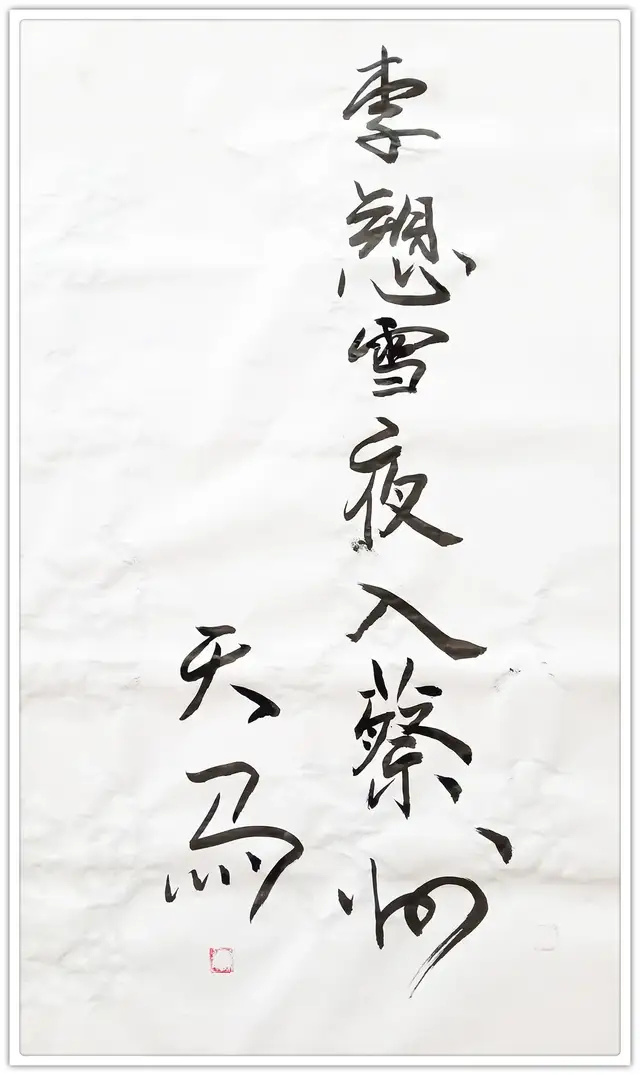 李愬雪夜入蔡州
天马